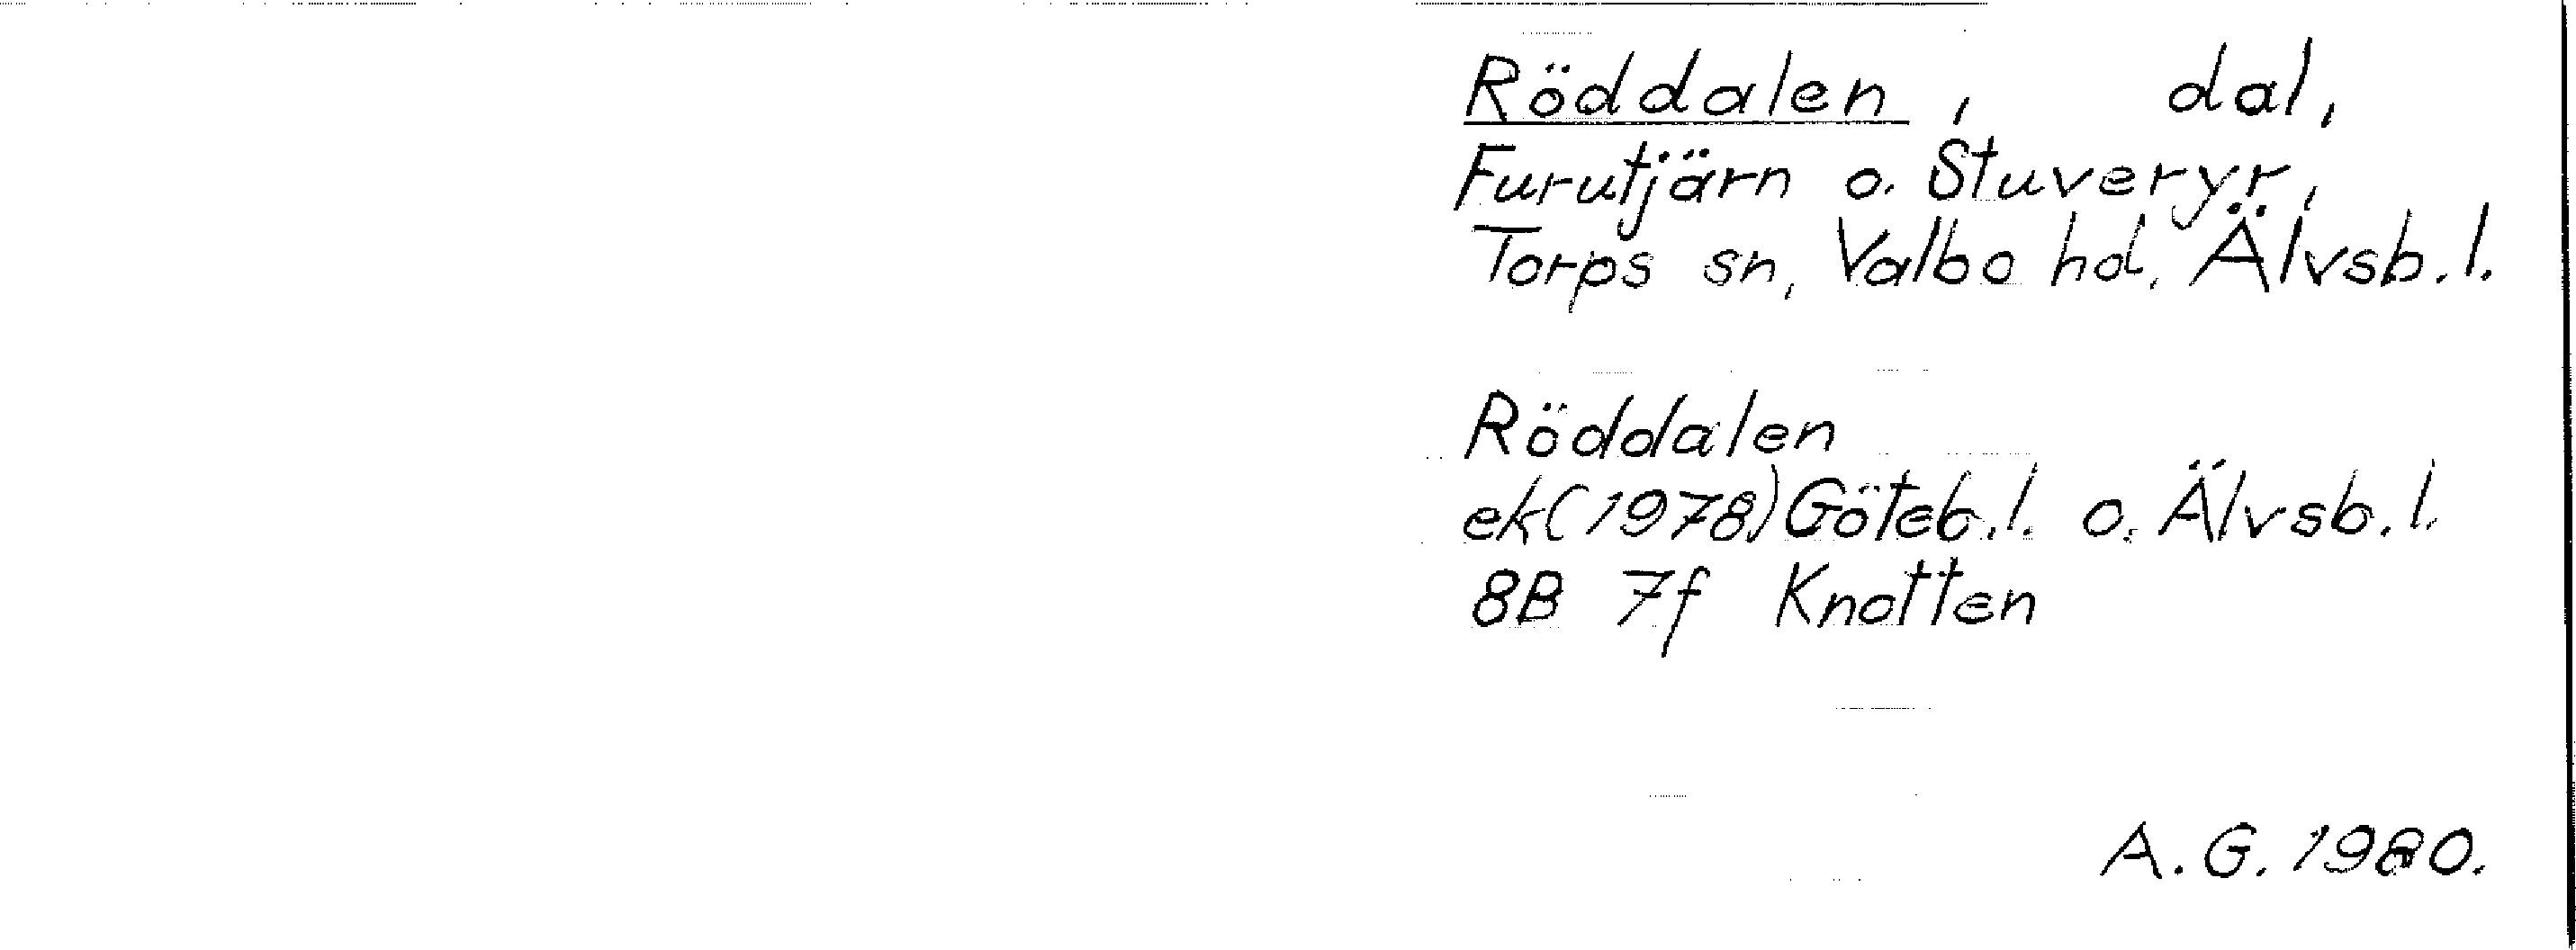 Röddalen, dal,
Furutjärn o. Stuveryr,
Torps sn, Valbo hd, Älvsb.l.
Röddalen
ek(1978)Göteb.l. o. Älvsb.l.
8B 7f Knotten
A.G. 1980.